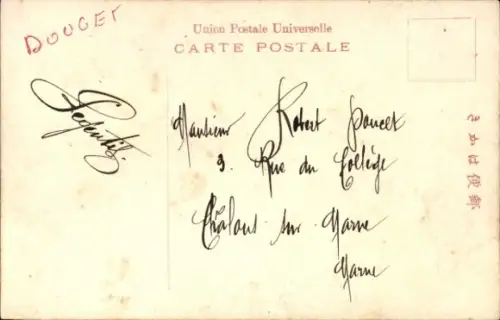 DOUCET
Union Postale Universelle
CARTE POSTALE
Monsieur Robert Doucet
9. Rue du Collège
Châlons sur Marne
Marne
きかは便郵